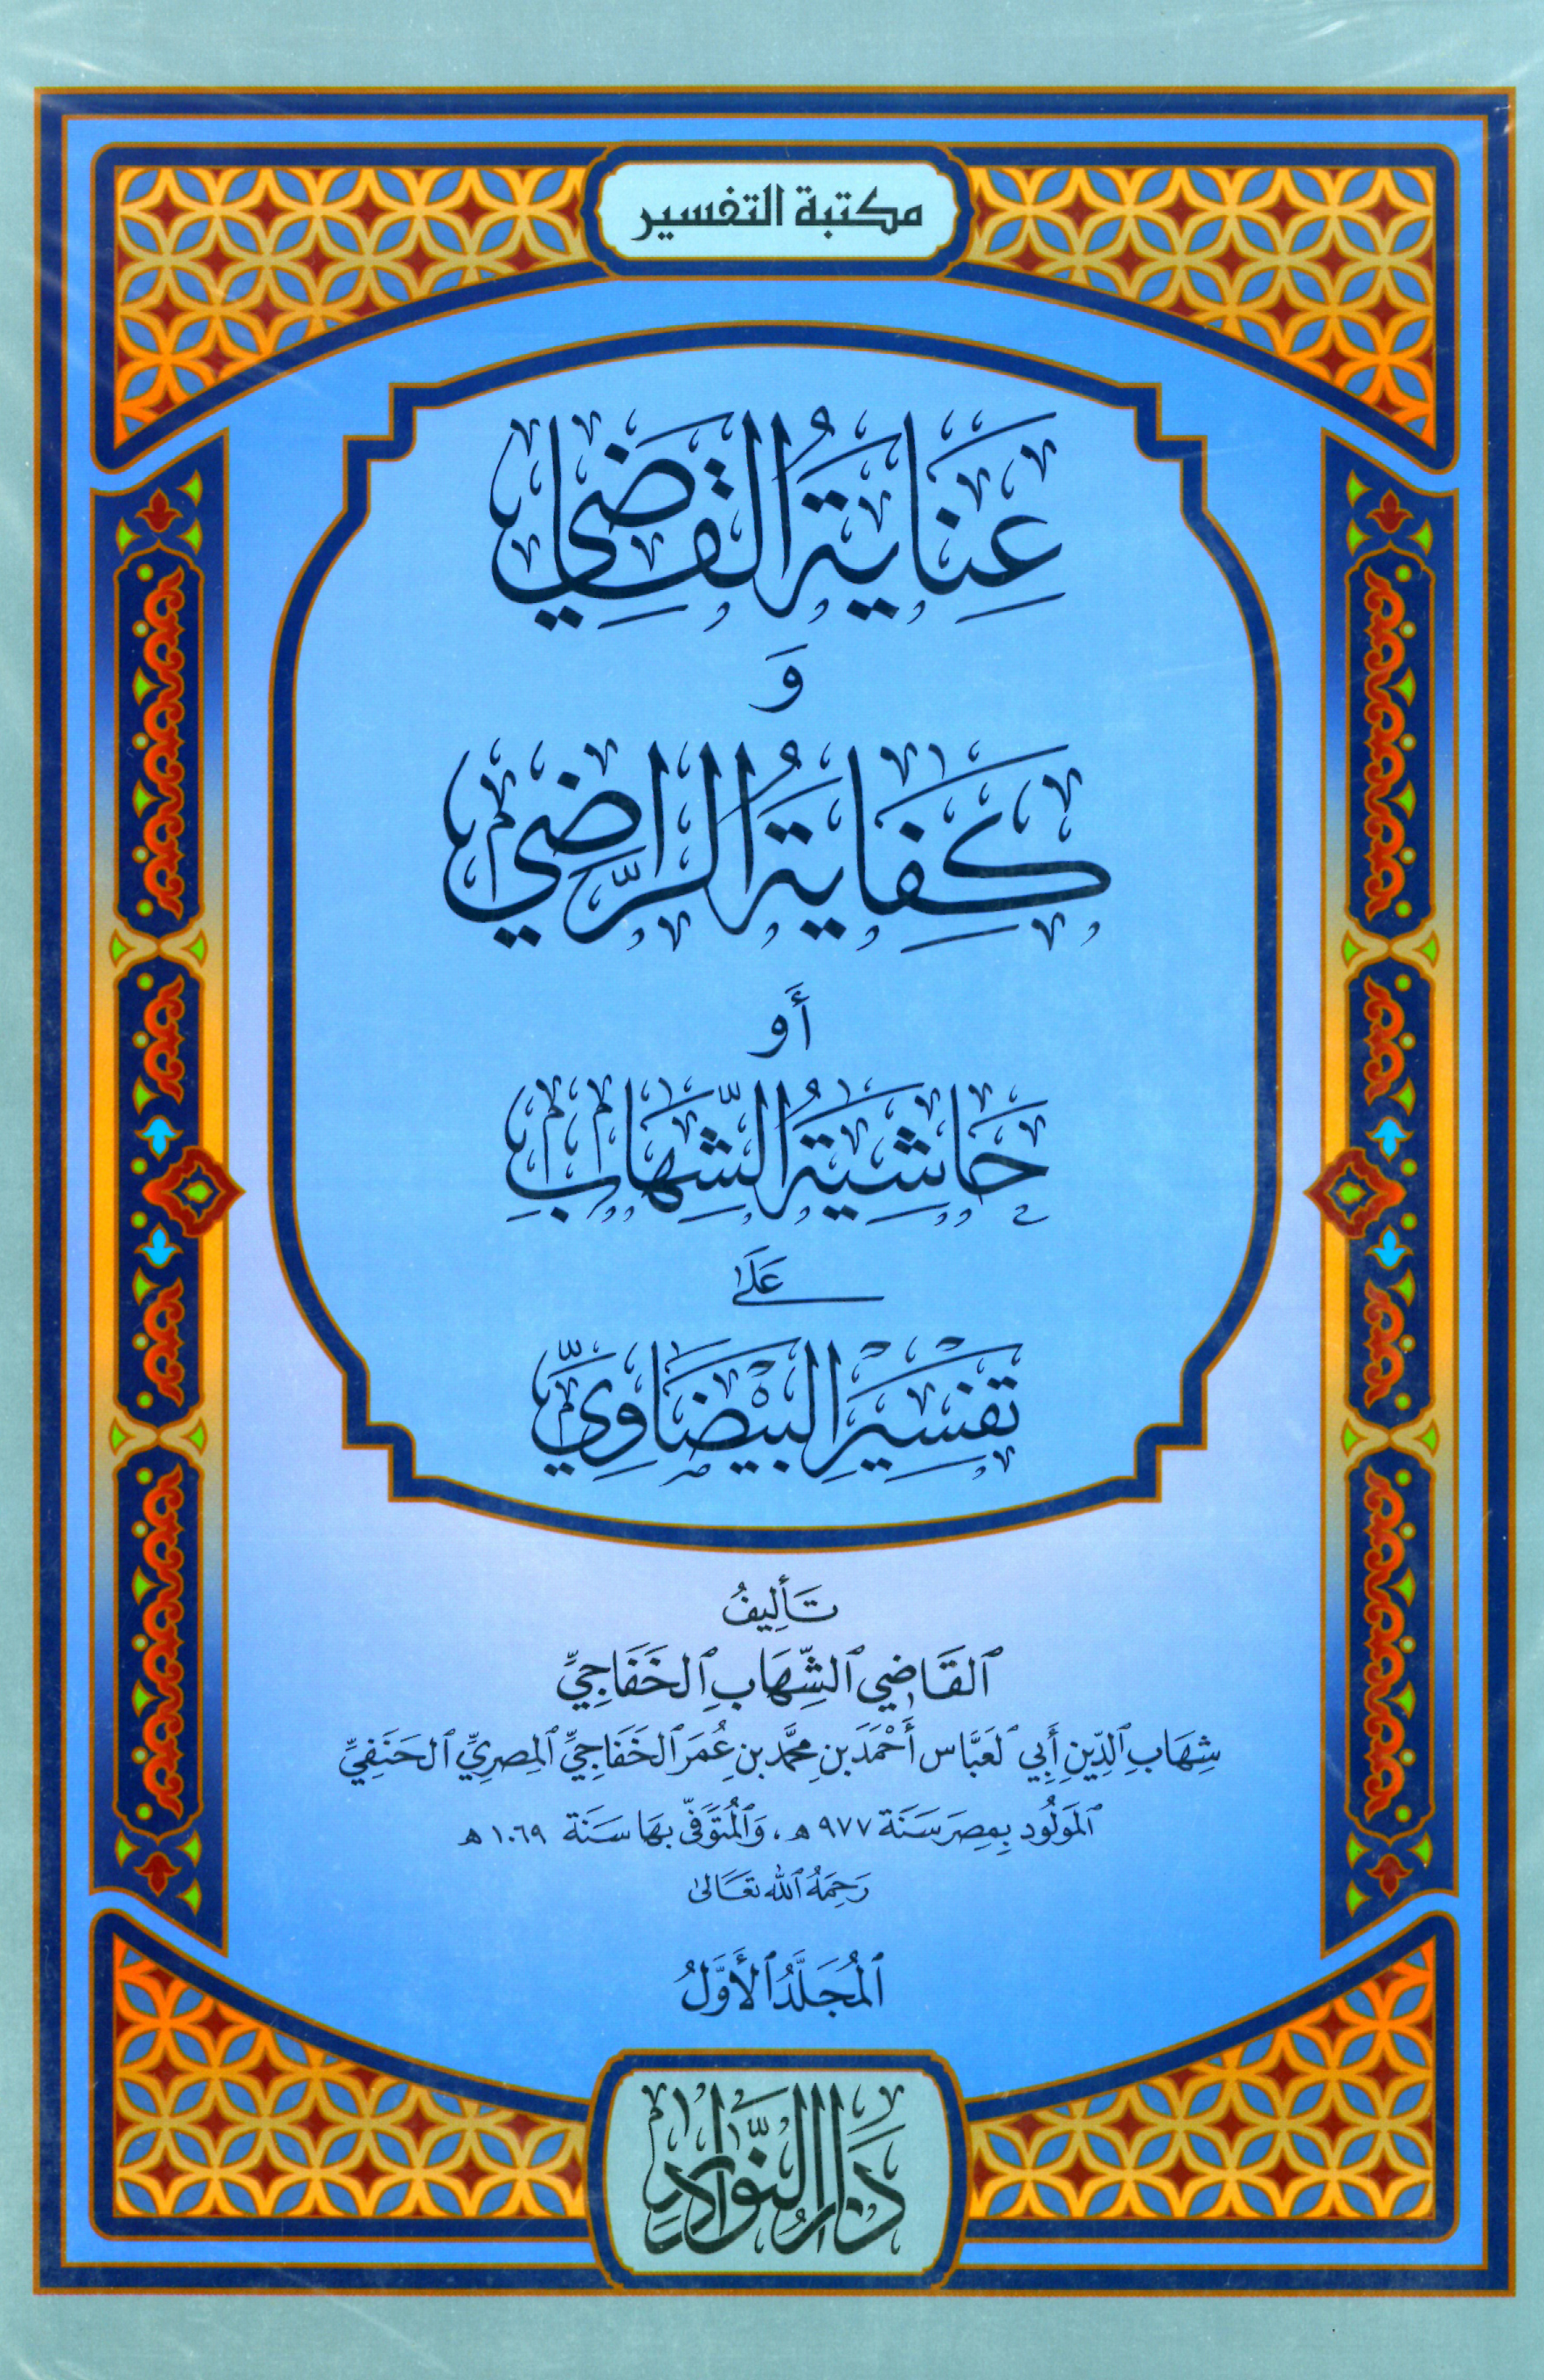 مكتبة التفسير
عِنَايَةُ القَاضِي
وَ
كِفَايَةُ الرَّاضِي
أَو
حَاشِيَةُ الشِّهَابِ
عَلَى
تَفْسِيْرِ البَيْضَاوِيِّ
تَأليفُ
ٱلقَاضِي ٱلشِّهَابِ ٱلخَفَاجِيِّ
شِهَابِ ٱلدِّينِ أَبِي ٱلعَبَّاس أَحْمَدَ بنِ محمَّد بنِ عُمَر ٱلخَفَاجِيِّ ٱلمِصرِيِّ ٱلحَنَفِيِّ
ٱلمَولُود بِمِصرَ سَنَة ٩٧٧ ه ، وَٱلمُتَوَفّى بهَا سَنَة ١٠٦٩ ه
رَحِمَهُ ٱلله تعَالىٰ
ٱلمُجَلَّدُ ٱلأَوَّلُ
دَارُ النَّوَادِرِ